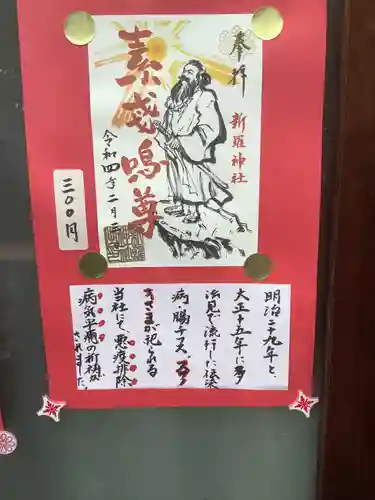 奉拝
新羅神社
素戔嗚尊
令和四年二月
三〇〇円
明治二十九年と、
大正十五年に多
治見で流行した伝染
病・腸チフス。
きさまが祀られる
当社にて、悪疫排除
病気平癒の祈祷が
されました。